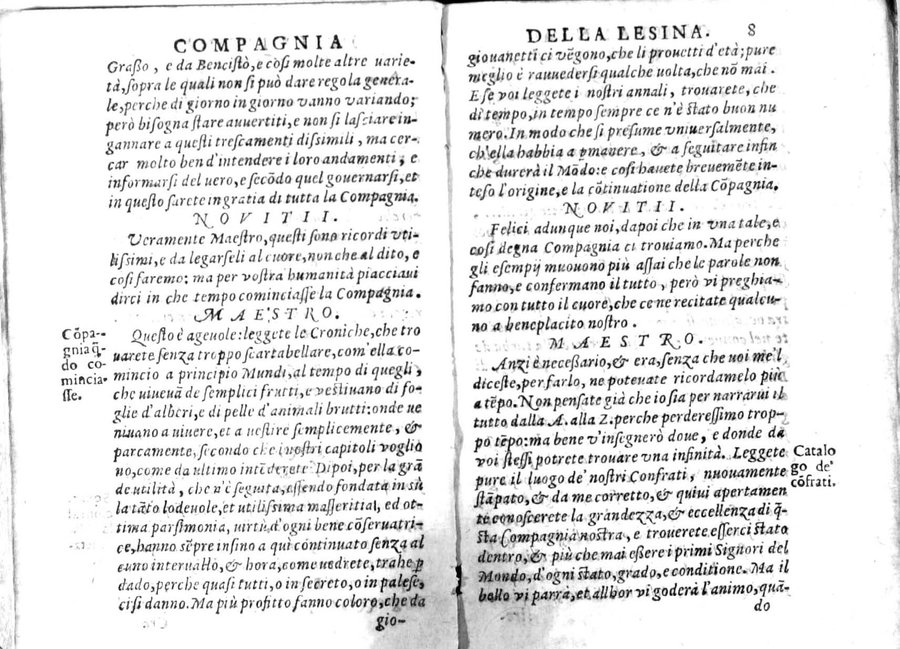 COMPAGNIA
Graſſo, e da Benciſtò, e coſi molte altre uarie-
tà, ſopra le quali non ſi può dare regola genera-
le, perche di giorno in giorno vanno variando;
però biſogna ſtare auuertiti, e non ſi laſciare in-
gannare a queſti treſcamenti diſſimili, ma cer-
car molto bend'intendere i loro andamenti, e
informarſi del uero, e ſecōdo quel gouernarſi, et
in queſto ſarete in gratia di tutta la Compagnia.
NOVITII.
Veramente Maeſtro, queſti ſono ricordi vti-
liſsimi, e da legarſeli al cuore, non che al dito, e
coſi faremo: ma per voſtra humanità piacciaui
dirci in che tempo cominciaſſe la Compagnia.
MAESTRO.
Cōpa-
gnia q̄-
do co-
mincia-
ſſe.
Queſto è ageuole: leggete le Croniche, che tro
uarete ſenza troppo ſcartabellare, com'ella co-
mincio a principio Mundi, al tempo di quegli,
che uiueuā de ſemplici frutti, e veſtiuano di fo-
glie d'alberi, e di pelle d'animali brutti: onde ue
niuano a uiuere, et a ueſtire ſemplicemente, &
parcamente, ſecondo che i noſtri capitoli voglio
no, come da ultimo intēderete. Dipoi, per la grā
de utilità, che n'è ſeguita, eſſendo fondata in sù
la tāto lodeuole, et utiliſsima maſſeritia, ed ot-
tima parſimonia, uirtù d'ogni bene cōſeruatri-
ce, hanno sēpre inſino a quì continuato ſenza al
cuno interuallo, & hora, come uedrete, trahe p
dado, perche quaſi tutti, o in ſecreto, o in paleſe,
ci ſi danno. Ma più profitto fanno coloro, che da
gio-
DELLA LESINA. 8
giouanetti ci vēgono, che li prouetti d'età; pure
meglio è rauuederſi qualche uolta, che nō mai.
E ſe voi leggete i noſtri annali, trouarete, che
di tempo, in tempo ſempre ce n'è ſtato buon nu
mero. In modo che ſi preſume vniuerſalmente,
ch'ella habbia a pmanere, & a ſeguitare inſin
che durerà il Mōdo: e coſi hauete breuemēte in-
teſo l'origine, e la cōtinuatione della Cōpagnia.
NOVITII.
Felici adunque noi, dapoi che in vna tale, e
coſi degna Compagnia ci trouiamo. Ma perche
gli eſempij muouono più aſſai che le parole non
fanno, e confermano il tutto, però vi preghia-
mo con tutto il cuore, che ce ne recitate qualcu-
no a beneplacito noſtro.
MAESTRO.
Anzi è neceſſario, & era, ſenza che uoi me'l
diceſte, per farlo, ne poteuate ricordamelo più
a tēpo. Non penſate già che io ſia per narrarui il
tutto dalla A. alla Z. perche perdereſſimo trop-
po tēpo: ma bene v'inſegnerò doue, e donde da
voi ſteſſi potrete trouare vna infinità. Leggete
Catalo
go de'
cōfrati.
pure il luogo de' noſtri Confrati, nuouamente
ſtāpato, & da me corretto, & quiui apertamen
te conoſcerete la grandezza, & eccellenza di q̄-
ſta Compagnia noſtra, e trouerete eſſerci ſtato
dentro, & più che mai eſſere i primi Signori del
Mondo, d'ogni ſtato, grado, e conditione. Ma il
bello vi parrà, et allhor vi goderà l'animo, quā-
do